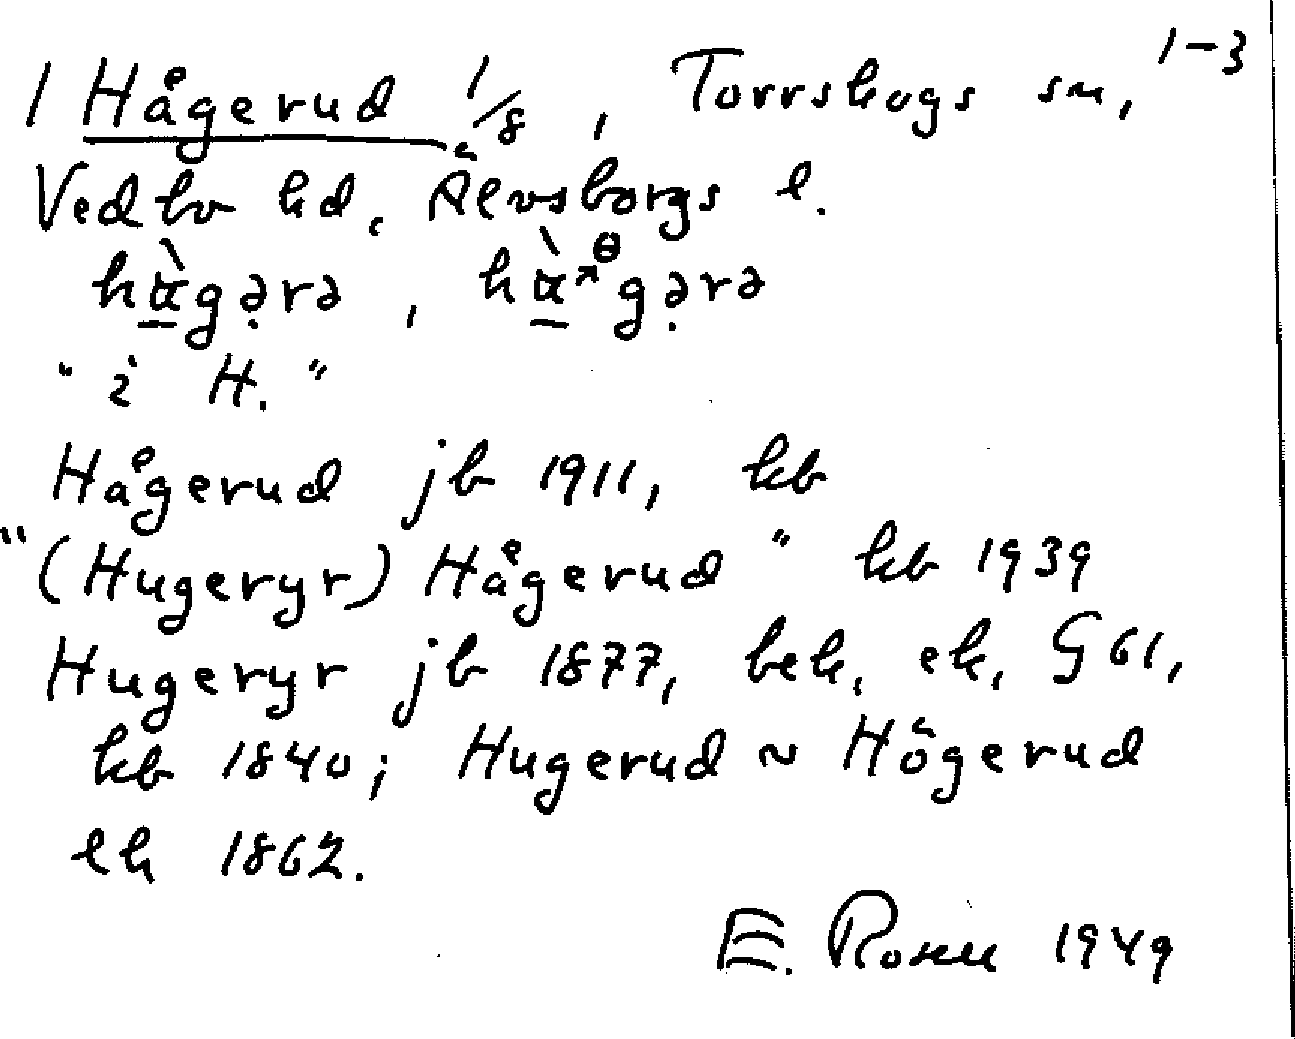 1 Hågerud 1/8, Torrskogs sn, 1-3
Vedbo hd, Älvsborgs l.
"i H."
Hågerud jb 1911, kb
"(Hugeryr) Hågerud" kb 1939
Hugeryr jb 1877, bek, ek, G 61,
kb 1840; Hugerud ~ Högerud
ek 1862.
E. Rosén 1949